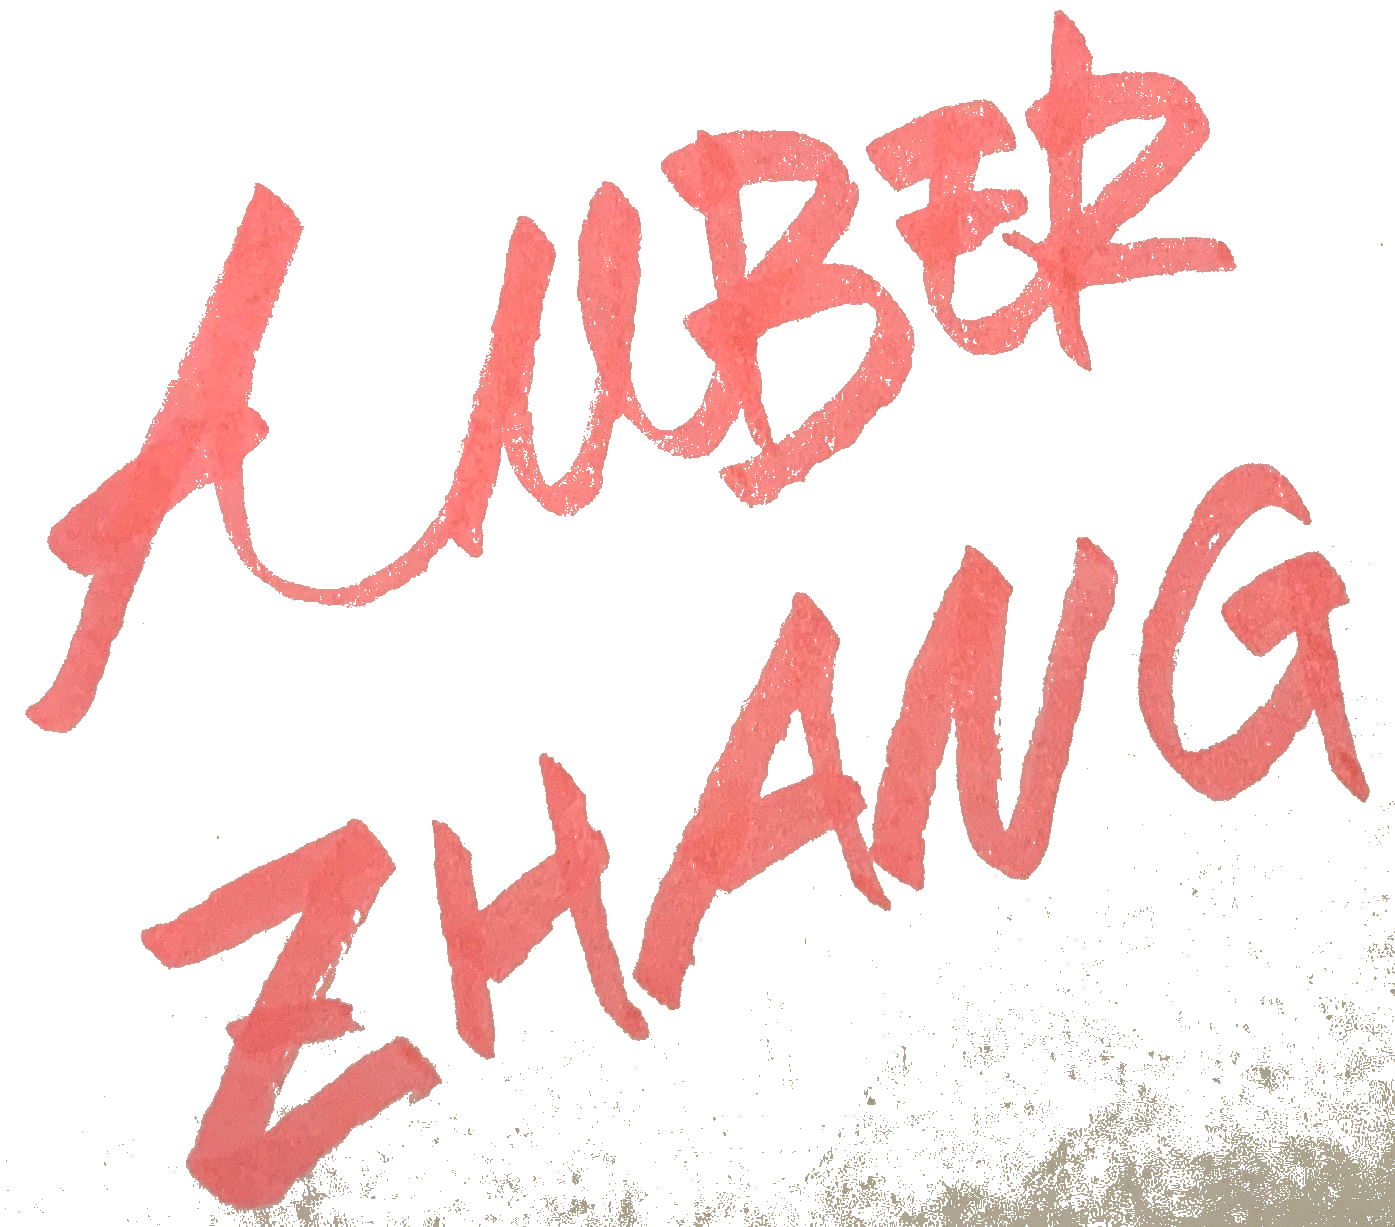 AMBER
ZHANG